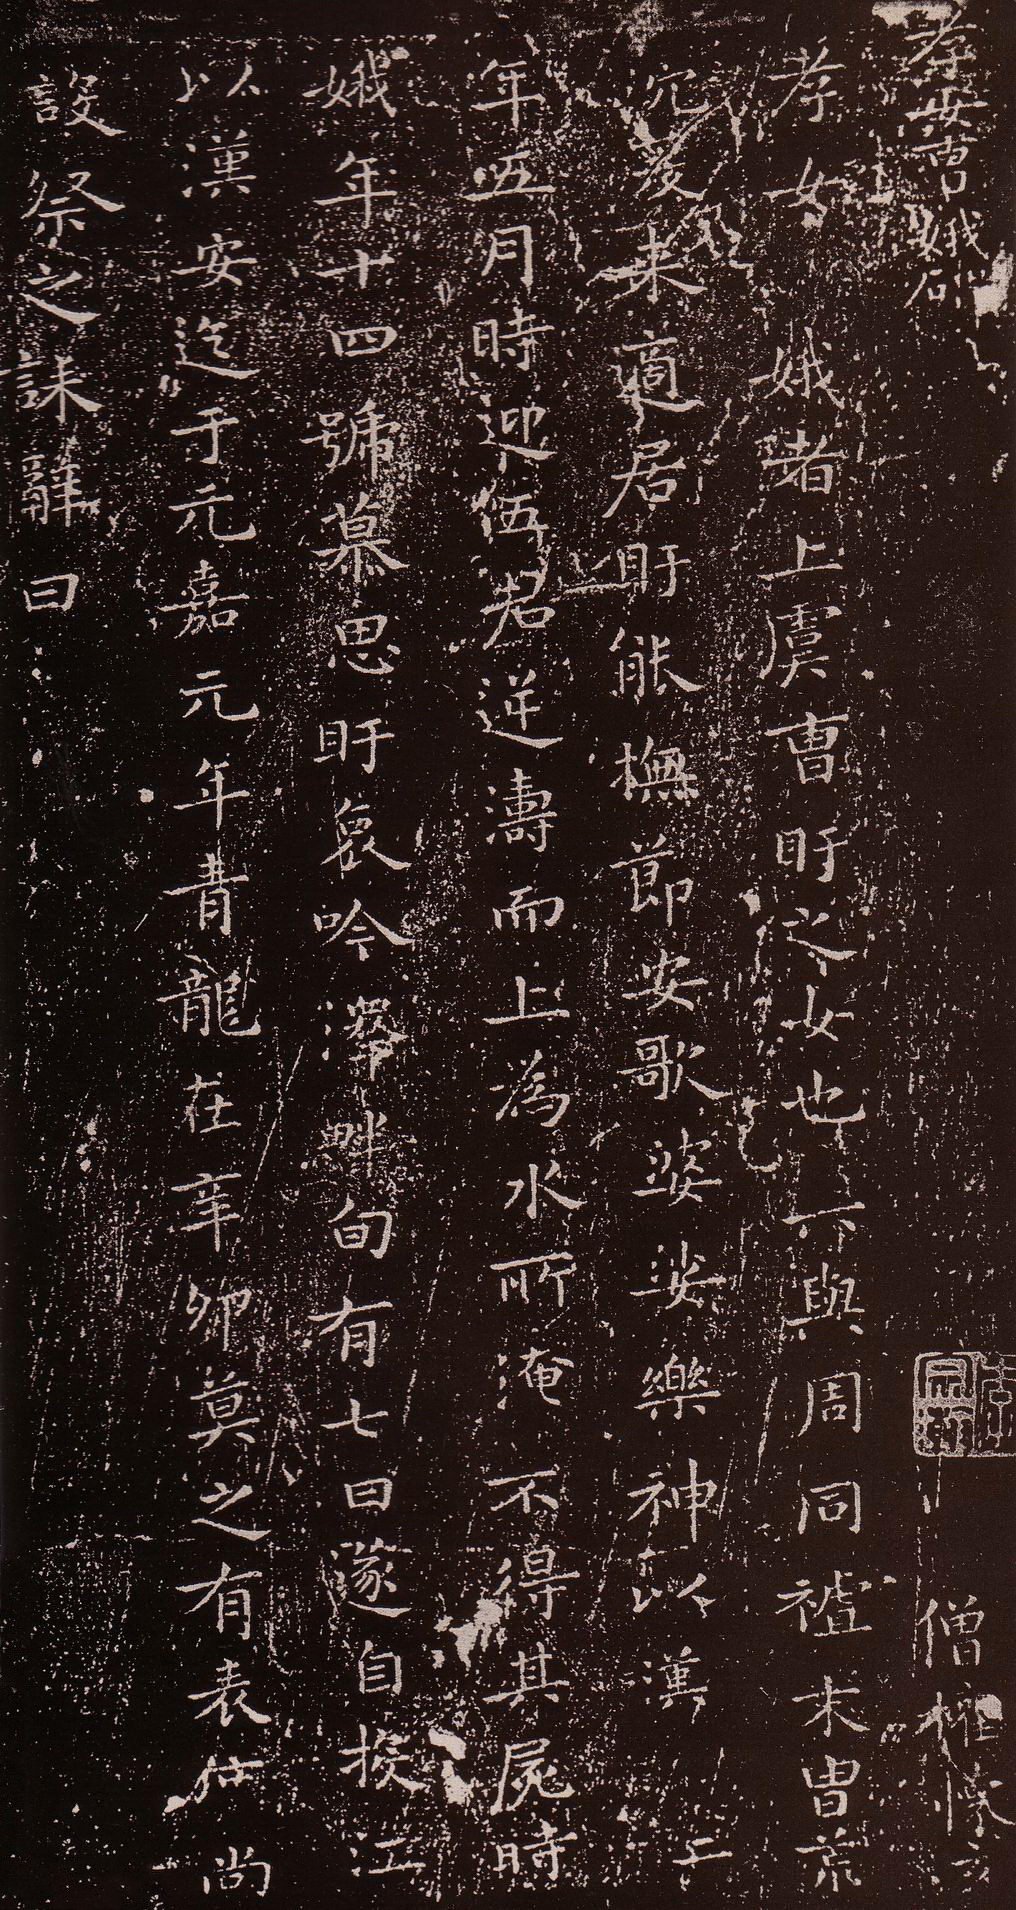 孝女曹娥碑
僧權 懷充
孝女娥者上虞曹盱之女也其與周同祖末冑荒
沉爰来適居盱能撫節安歌婆娑樂神以漢二
年五月時迎伍君逆濤而上為水所淹不得其屍時
娥年十四號慕思盱哀吟澤畔旬有七日遂自投江
以漢安迄于元嘉元年青龍在辛卯莫之有表
設祭之誄辭曰
尚